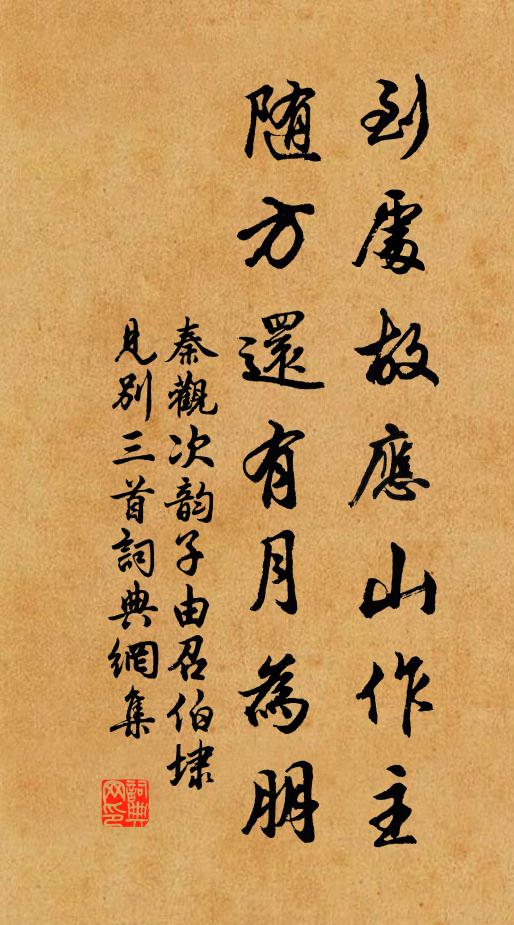 到處故應山作主
随方還有月為朋
秦觀次韵子由召伯埭
見别三首詞典網集
詞典網印